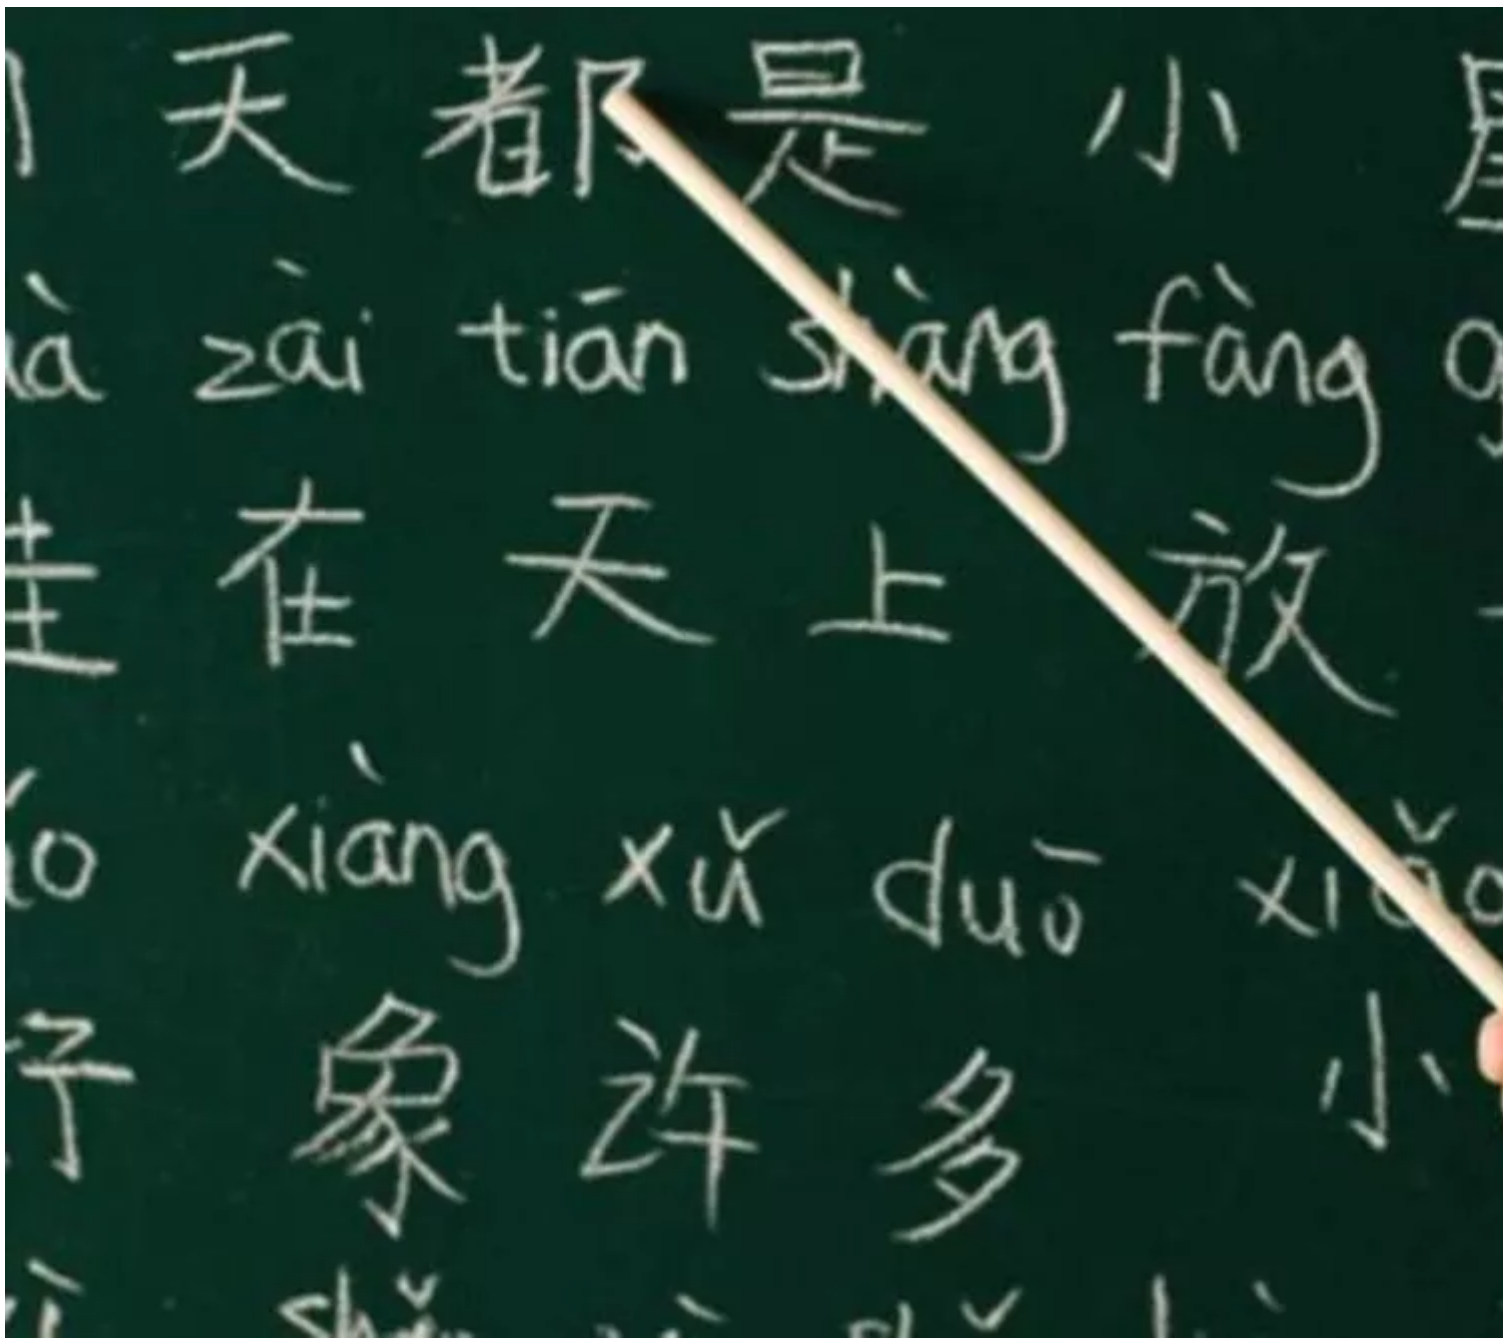 天 都 是 小
zài tiān shàng fàng
在 天 上 放
xiàng xǔ duō xiǎo
子 象 许 多 小